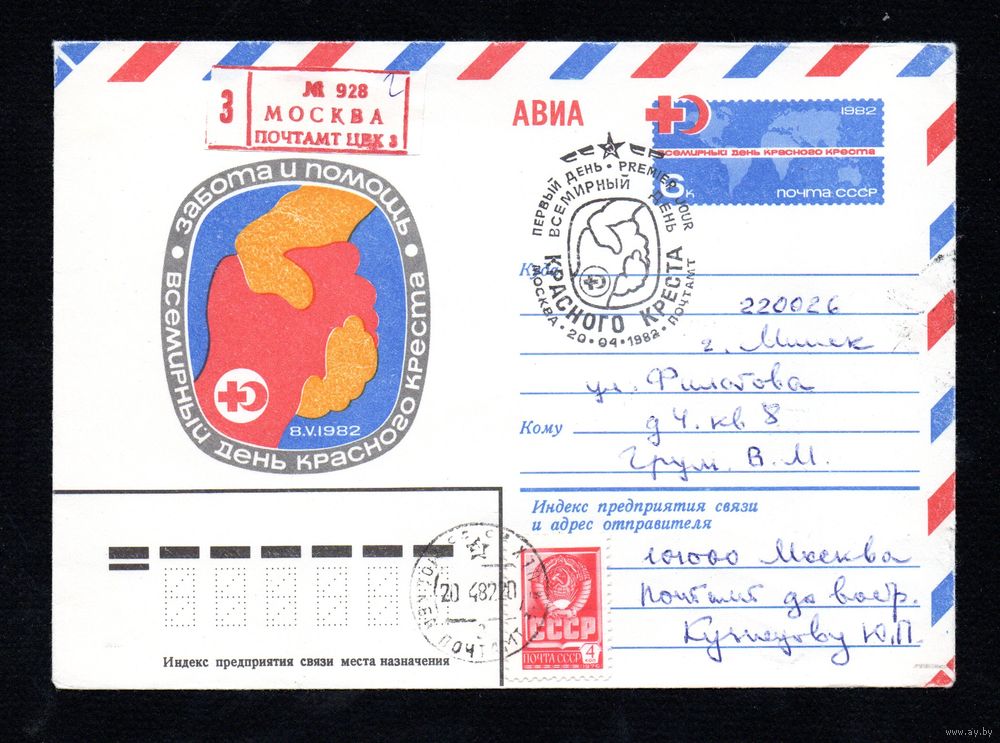 З
№ 928
2
МОСКВА
ПОЧТАМТ ЦВК 3
АВИА
1982
ВСЕМИРНЫЙ ДЕНЬ КРАСНОГО КРЕСТА
6к
ПОЧТА СССР
ЗАБОТА И ПОМОЩЬ
ВСЕМИРНЫЙ ДЕНЬ КРАСНОГО КРЕСТА
8.V.1982
ПЕРВЫЙ ДЕНЬ • PREMIER JOUR
ВСЕМИРНЫЙ ДЕНЬ
КРАСНОГО КРЕСТА
МОСКВА • 20•04•1982 • ПОЧТАМТ
Куда
220026
г. Минск
ул. Филатова
Кому
д 4. кв 8
Грум. В. М.
Индекс предприятия связи
и адрес отправителя
101000 Москва
Почтамт до востр.
Кузнецову Ю.П.
20 48220
ПОЧТАМТ
СССР
ПОЧТА СССР
4
КОП
1976
Индекс предприятия связи места назначения
www.ay.by